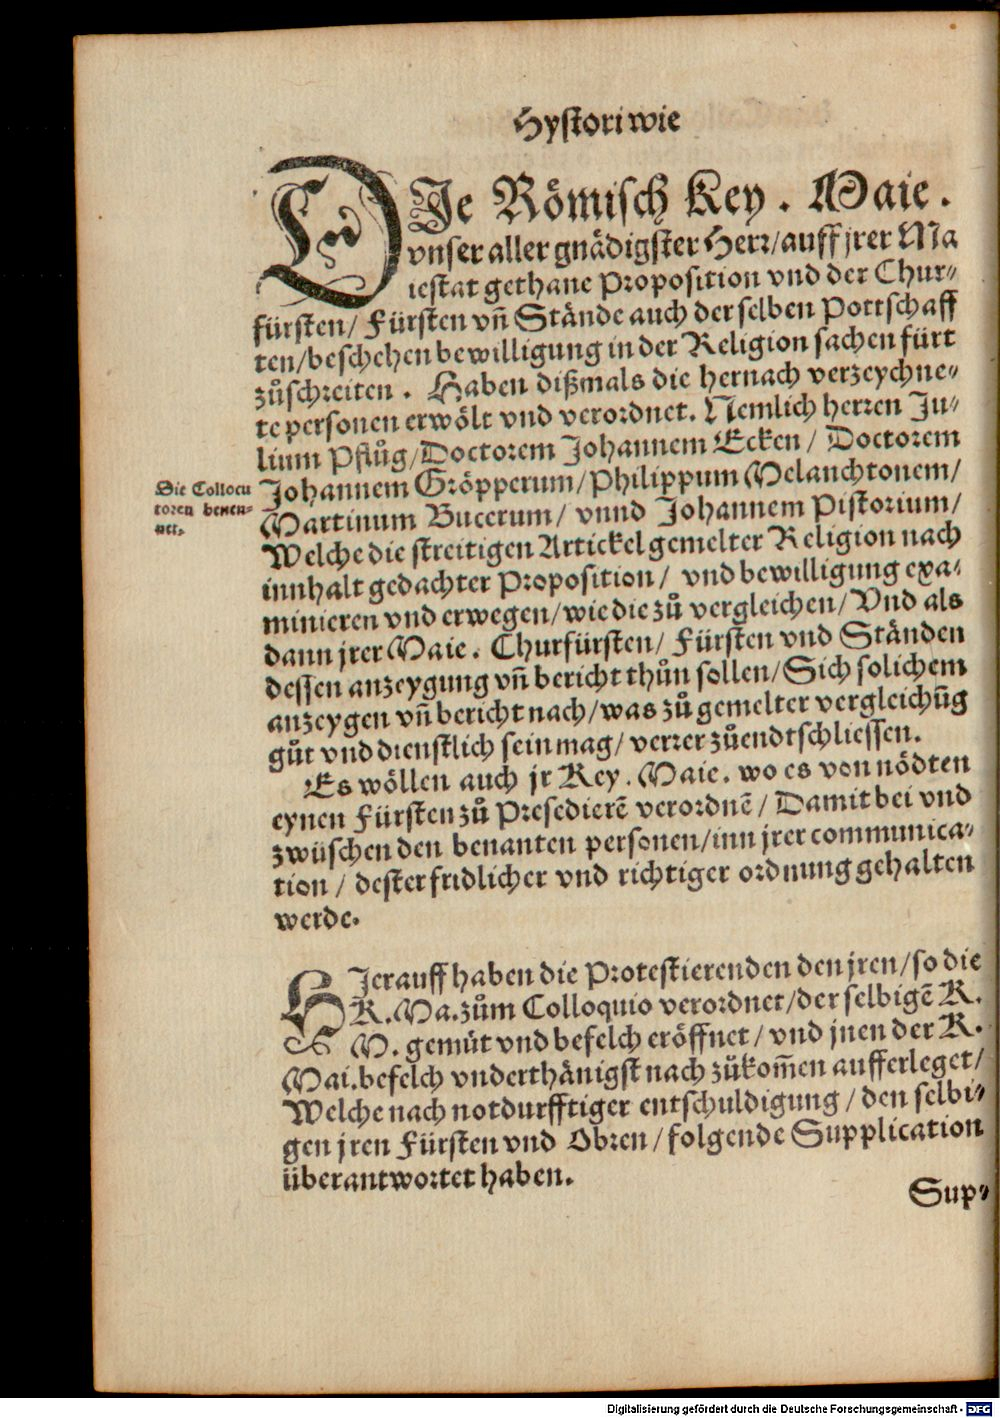 Hystori wie
DIe Römisch Key. Maie.
vnser aller gnädigster Herr/auff jrer Ma
iestat gethane Proposition vnd der Chur⸗
fürsten/ Fürsten vñ Stände auch der selben Pottschaff
ten/beschehen bewilligung in der Religion sachen fürt
zůschreiten. Haben dißmals die hernach verzeychne⸗
te personen erwölt vnd verordnet. Nemlich herren Ju⸗
lium Pflůg/Doctorem Johannem Ecken/ Doctorem
Johannem Gröpperum/Philippum Melanchtonem/
Die Collocu
toren benen⸗
net.
Martinum Bucerum/ vnnd Johannem Pistorium/
Welche die streitigen Artickel gemelter Religion nach
innhalt gedachter Proposition/ vnd bewilligung exa⸗
minieren vnd erwegen/wie die zů vergleichen/Vnd als
dann jrer Maie. Churfürsten/ Fürsten vnd Ständen
dessen anzeygung vñ bericht thůn sollen/Sich solichem
anzeygen vñ bericht nach/was zů gemelter vergleichũg
gůt vnd dienstlich sein mag/ verrer zůendtschliessen.
Es wöllen auch jr Key. Maie. wo es von nödten
eynen Fürsten zů Presedierẽ verordnẽ/ Damit bei vnd
zwüschen den benanten personen/inn jrer communica⸗
tion/ dester fridlicher vnd richtiger ordnung gehalten
werde.
HJerauff haben die Protestierenden den jren/so die
K. Ma. zům Colloquio verordnet/der selbigẽ K.
M. gemüt vnd befelch eröffnet/ vnd jnen der K.
Mai. befelch vnderthänigst nach zůkom̃en aufferleget/
Welche nach notdurfftiger entschuldigung/den selbi⸗
gen jren Fürsten vnd Obren/folgende Supplication
überantwortet haben.
Sup⸗
Digitalisierung gefördert durch die Deutsche Forschungsgemeinschaft - DFG